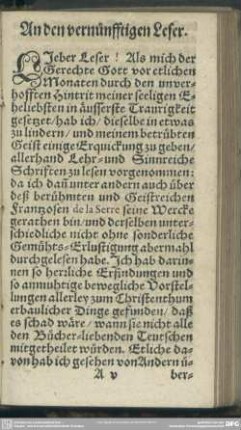 An den vernünfftigen Leser.
LIeber Leser! Als mich der
Gerechte Gott vor etlichen
Monaten durch den unver-
hofften Hintrit meiner seeligen E-
heliebsten in äusserste Traurigkeit
gesetzet / hab ich / dieselbe in etwas
zu lindern / und meinem betrübten
Geist einige Erquickung zu geben /
allerhand Lehr- und Sinnreiche
Schrifften zu lesen vorgenommen:
da ich dañ unter andern auch über
deß berühmten und Geistreichen
Frantzosen de la Serre seine Wercke
gerathen bin / und derselben unter-
schiedliche nicht ohne sonderliche
Gemühts-Erlustigung abermahl
durchgelesen habe. Ich hab darin-
nen so herrliche Erfindungen und
so anmuhtige bewegliche Vorstel-
lungen allerley zum Christenthum
erbaulicher Dinge gefunden / daß
es schad wäre / wann sie nicht alle
den Bücher-liebenden Teutschen
mitgetheilet würden. Etliche da-
von hab ich gesehen von Andern ü-
A v ber-